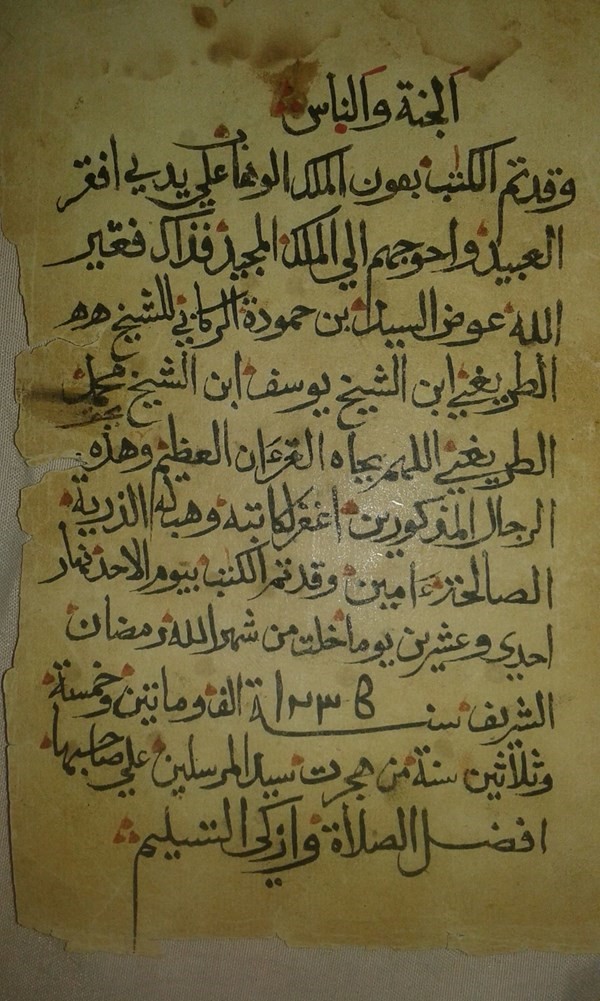 الجنة والناس
وقدتم الكتب بعون الملك الوهاب علي يدي افقر
العبيد واحوجهم الي الملك المجيد فذاك فقير
الله عوض السيد بن حمودة الركابي للشيخ
الطريفي ابن الشيخ يوسف ابن الشيخ محمد
الطريفي اللهم بجاه القرءان العظيم وهذه
الرجال المذكورين اغفر لكاتبه وهب له الذرية
الصالحة ءامين وقدتم الكتب بيوم الاحد نهار
احدي وعشرين يوما خلت من شهر الله رمضان
الشريف سنة ١٢٣٥ الف وماتين وخمسة
وثلاثين سنة من هجرت سيد المرسلين علي صاحبها
افضل الصلاة وازكى التسليم